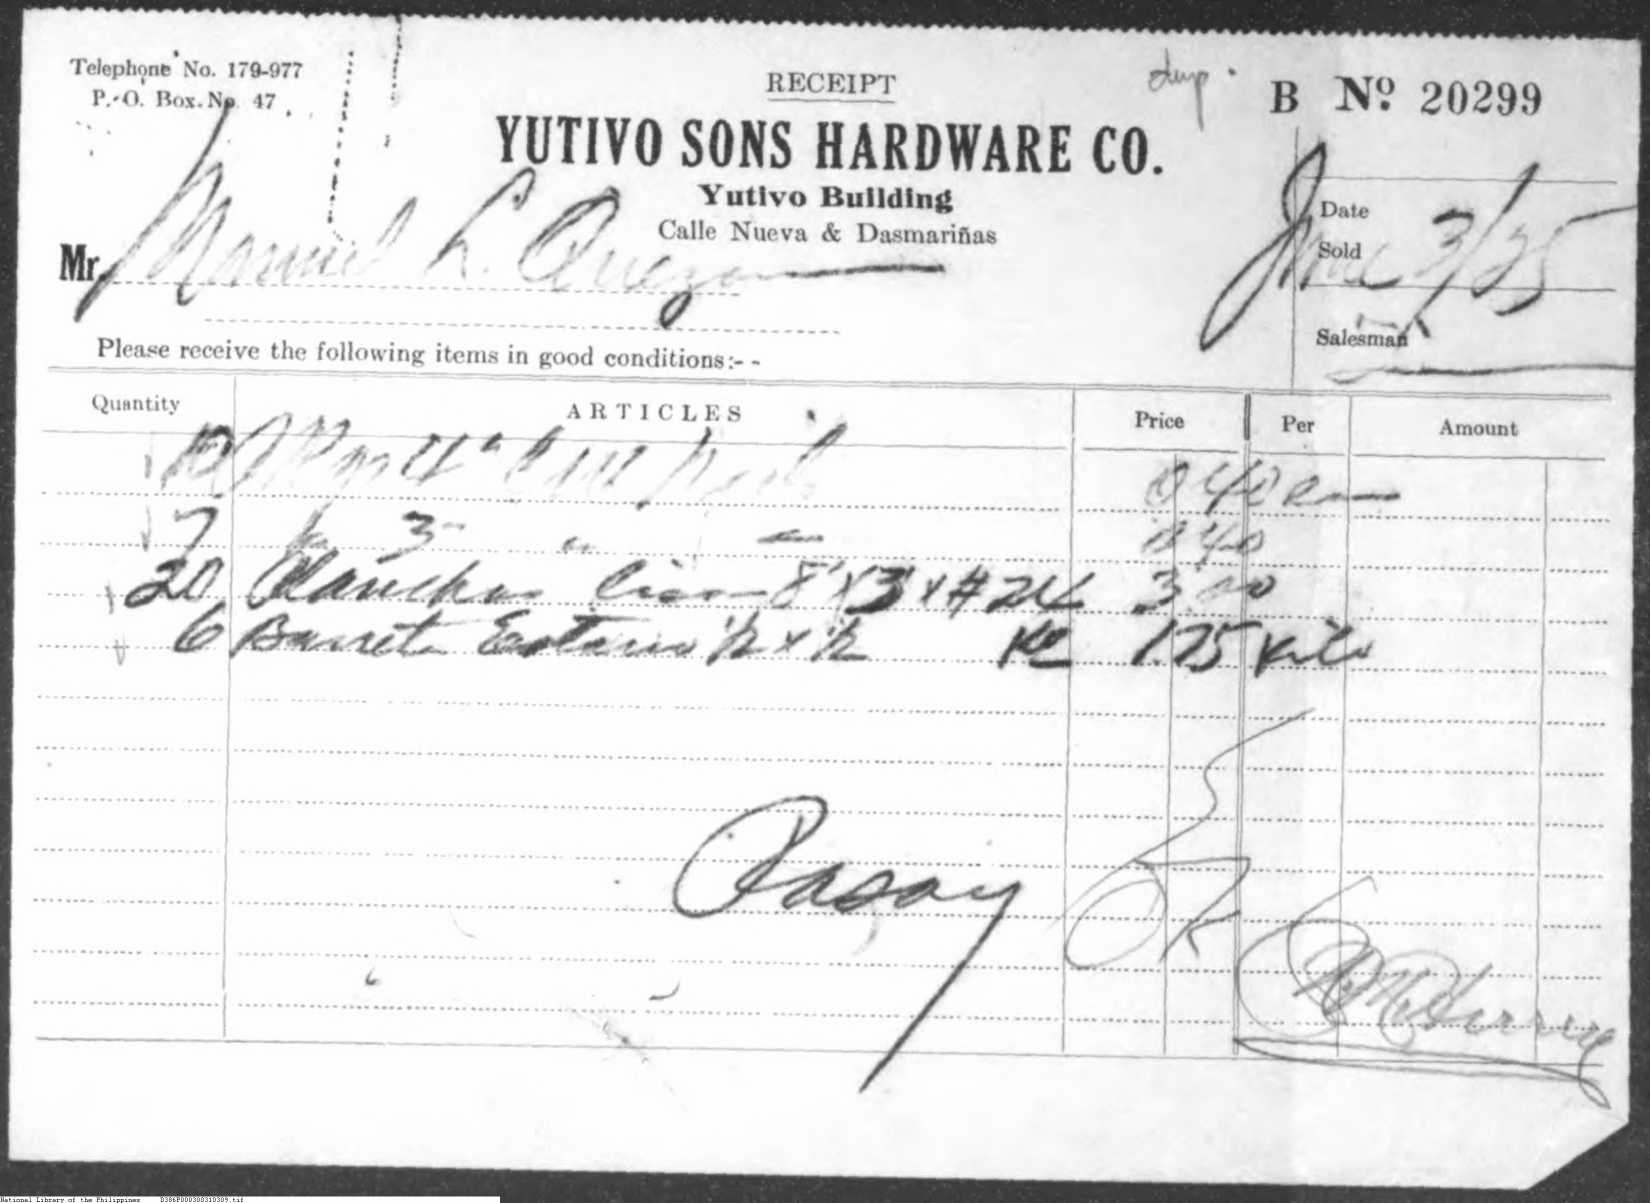 Telephone No. 179-977
P. O. Box. No. 47
dup.
RECEIPT
B Nº 20299
YUTIVO SONS HARDWARE CO.
Yutivo Building
Calle Nueva & Dasmariñas
Mr. Manuel L. Quezon
Date Sold June 3/25
Salesman
Please receive the following items in good conditions:- -
Quantity ARTICLES Price Per Amount
10 4" nails 0 40
7 3" " " 0 40
20 Planchas liso 8 x 3 x #24 3.00
6 Barreta Estano 1/2 x 1/2 1.75 kilo
Pasay
OK
National Library of the Philippines D386P000300310309.tif